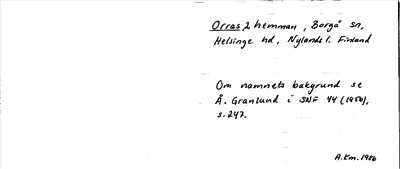 Orras 2 hemman, Borgå sn,
Helsinge hd, Nylands l. Finland
Om namnets bakgrund se
Å. Granlund i SNF 44 (1956),
s. 247.
A.Km. 1986